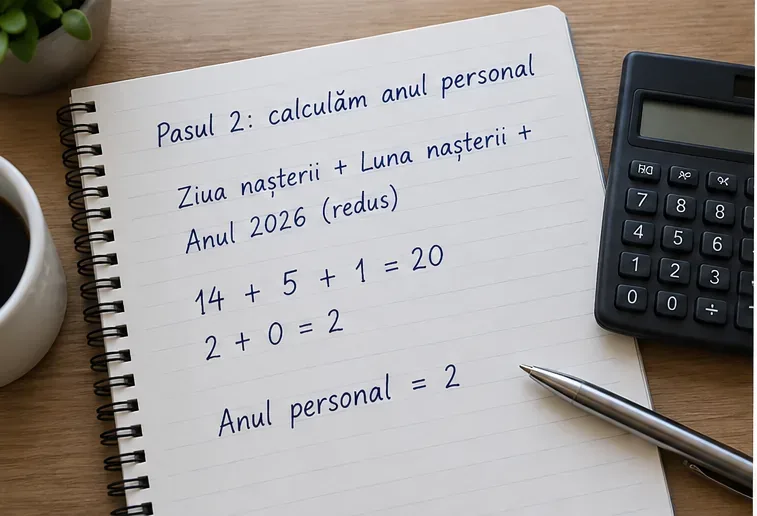 Pasul 2: calculăm anul personal
Ziua nașterii + Luna nașterii +
Anul 2026 (redus)
14 + 5 + 1 = 20
2 + 0 = 2
Anul personal = 2
7 8 8
4 5 6
1 2 3
0 0 ÷